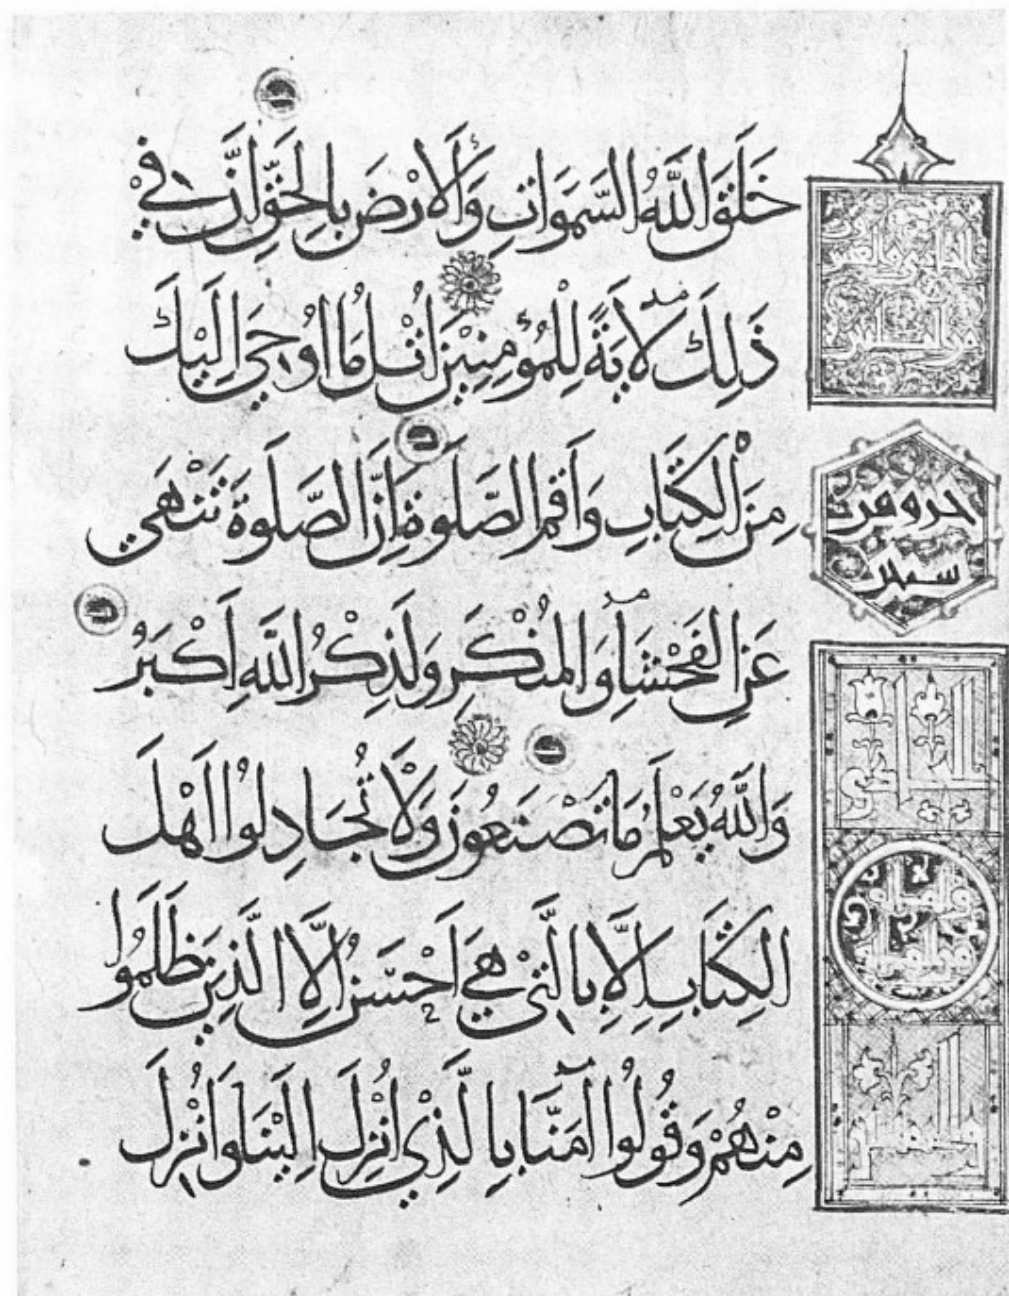 خَلَقَ اللَّهُ السَّمَوَاتِ وَالْاَرْضَ بِالْحَقِّ اِنَّ فِيْ
ذَلِكَ لَاٰيَةً لِلْمُؤْمِنِيْنَ اُتْلُ مَا اُوْحِيَ اِلَيْكَ
مِنَ الْكِتَابِ وَاَقِمِ الصَّلَوةَ اِنَّ الصَّلَوةَ تَنْهَى
عَنِ الْفَحْشَاءِ وَالْمُنْكَرِ وَلَذِكْرُ اللَّهِ اَكْبَرُ
وَاللَّهُ يَعْلَمُ مَا تَصْنَعُوْنَ وَلَا تُجَادِلُوا اَهْلَ
الْكِتَابِ اِلَّا بِالَّتِيْ هِيَ اَحْسَنُ اِلَّا الَّذِيْنَ ظَلَمُوا
مِنْهُمْ وَقُولُوا اٰمَنَّا بِالَّذِيْ اُنْزِلَ اِلَيْنَا وَاُنْزِلَ